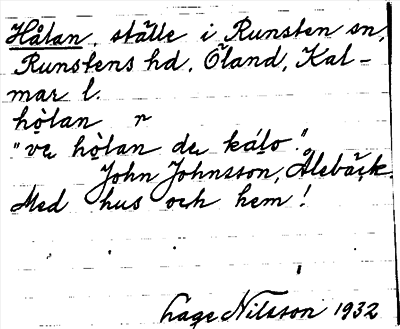 Hålan, ställe i Runsten sn,
Runstens hd, Öland, Kal-
mar l.
họ̀lan ~
"va họ̀lan da kálo".
John Johnsson, Ålebäck.
Med hus och hem!
Lage Nilsson 1932